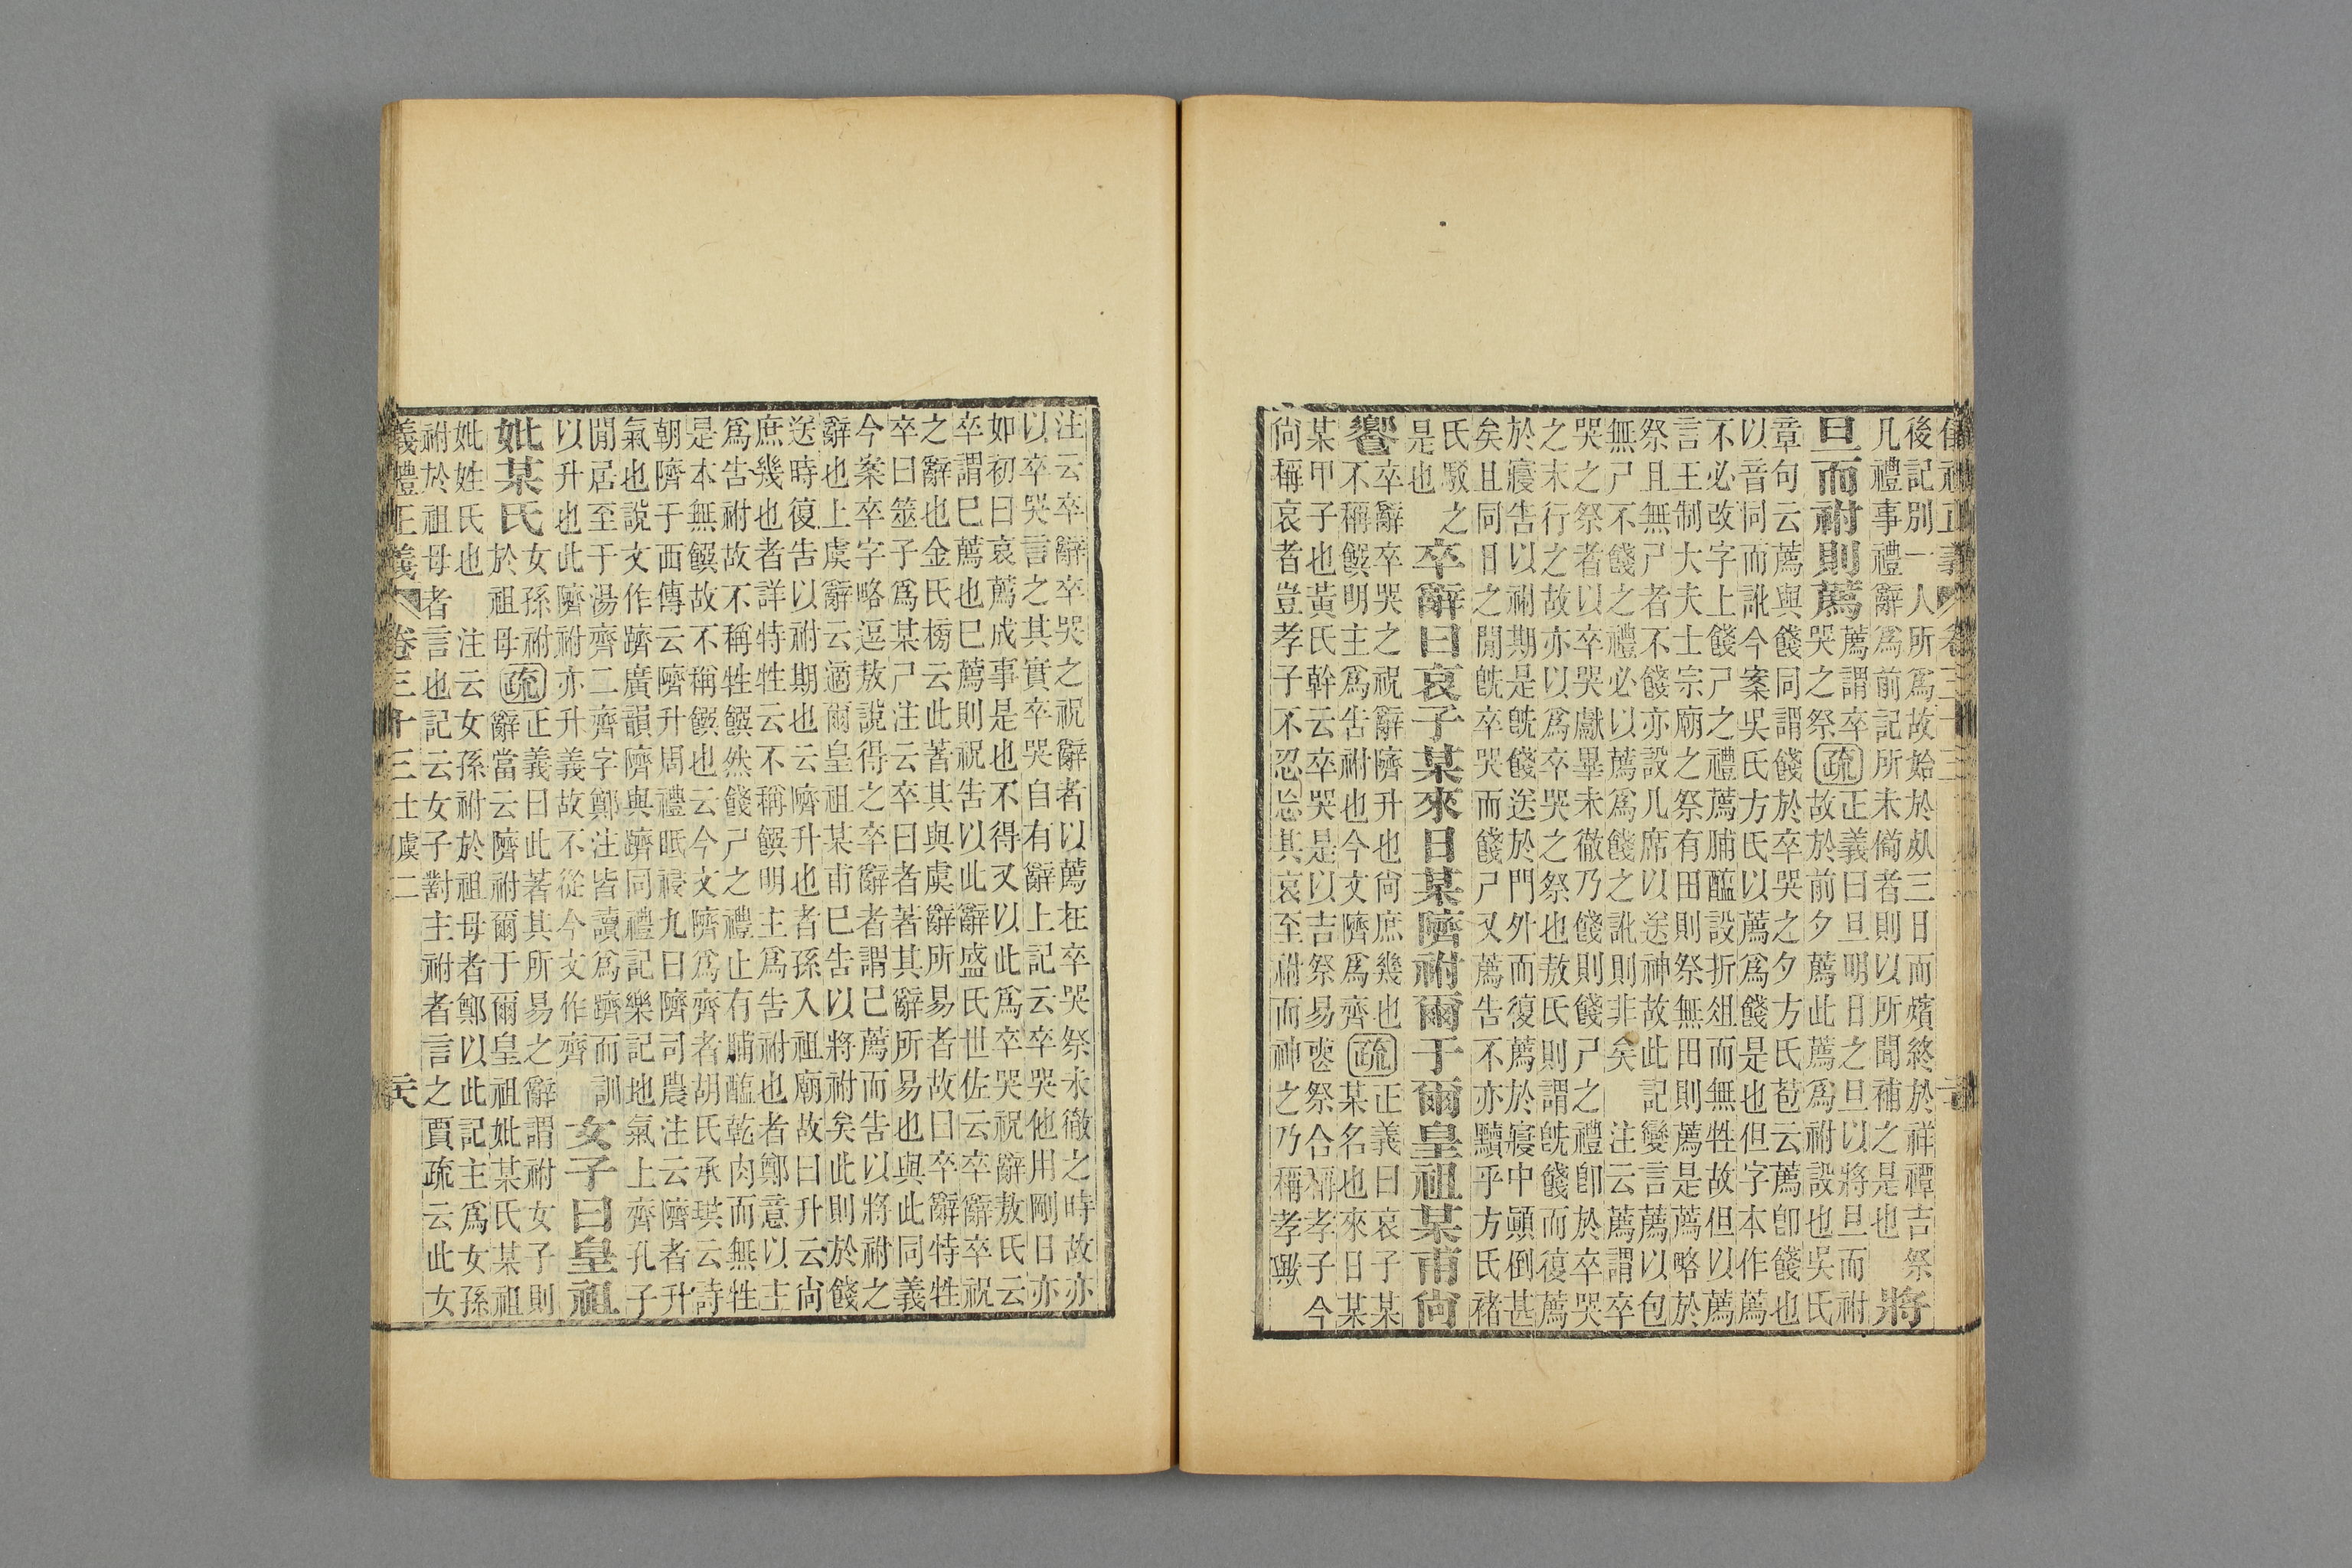 後記別一人所爲故始於㱾三日而殯終於祥禫吉祭
凡禮事禮辭爲前記所未備者則以所聞補之是也
將
旦而祔則薦
薦謂卒
哭之祭
疏
正義曰旦明日之旦以將旦而祔
故於前夕薦此薦爲祔設也吳氏
章句云薦與餞同謂餞於卒哭之夕方氏苞云薦卽餞也
以音同而訛今案吳氏方氏以薦爲餞是也但字本作薦
不必改字上餞尸之禮薦脯醢設折俎而無牲故但以薦
言王制大夫士宗廟之祭有田則祭無田則薦是薦略於
祭且無尸者不餞亦設几席以送神故此記變言薦以包
無尸不餞之禮必以薦爲餞之訛則非矣 注云薦謂卒
哭之祭者以卒哭獻畢未徹乃餞則餞尸之禮卽於卒哭
之末行之故亦以爲卒哭之祭也敖氏則謂旣餞而復薦
於寢告以祔期是旣餞送於門外而復薦於寢中顚倒甚
矣且同日之閒旣卒哭而餞尸又薦告不亦黷乎方氏褚
氏駁之
是也
卒辭曰哀子某來日某隮祔爾于爾皇祖某甫尙
饗
卒辭卒哭之祝辭隮升也尙庶幾也
不稱饌明主爲告祔也今文隮爲齊
疏
正義曰哀子某
某名也來日某
某甲子也黃氏幹云卒哭是以吉祭易喪祭合稱孝子今
尙稱哀者豈孝子不忍忘其哀至祔而神之乃稱孝歟
注云卒辭卒哭之祝辭者以薦在卒哭祭未徹之時故亦
以卒哭言之其實卒哭自有辭上記云卒哭他用剛日亦
如初曰哀薦成事是也不得又以此爲卒哭祝辭敖氏云
卒謂巳薦也巳薦則祝告以此辭盛氏世佐云卒辭卒祝
之辭也金氏榜云此著其與虞辭所易者故曰卒辭特牲
卒曰筮子爲某尸注云卒曰者著其辭所易也與此同義
今案卒字略逗敖說得之卒辭者謂己薦而告以將祔之
辭也上虞辭云適爾皇祖某甫巳告以將祔矣此則於餞
送時復告以祔期也云隮升也者孫入祖廟故曰升云尙
庶幾也者詳特牲云不稱饌明主爲告祔也者鄭意以主
爲告祔故不稱牲饌然餞尸之禮止有脯醢乾肉而無牲
是本無饌故不稱饌也云今文隮爲齊者胡氏承珙云詩
朝隮于西傳云隮升周禮眂祲九曰隮司農注云隮者升
氣也說文作躋廣韻隮與躋同禮記樂記地氣上齊孔子
閒居至于湯齊二齊字鄭注皆讀爲躋而訓
以升也此隮祔亦升義故不從今文作齊
女子曰皇祖
妣某氏
女孫祔
於祖母
疏
正義曰此著其所易之辭謂祔女子則
辭當云隮祔爾于爾皇祖妣某氏某祖
妣姓氏也 注云女孫祔於祖母者鄭以此記主爲女孫
祔於祖母者言也記云女子對主祔者言之賈疏云此女
義禮正義 卷三十三 士虞二